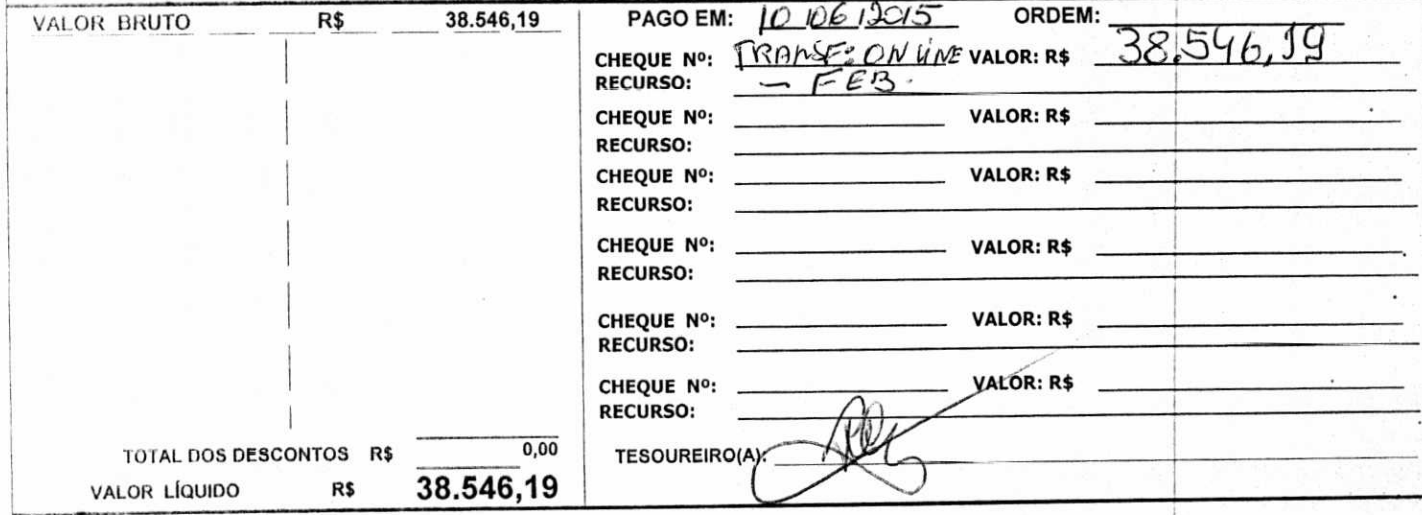 VALOR BRUTO R$ 38.546,19
TOTAL DOS DESCONTOS R$ 0,00
VALOR LÍQUIDO R$ 38.546,19
PAGO EM: 10/06/2015 ORDEM:
CHEQUE Nº: TRANSF: ONLINE VALOR: R$ 38.546,19
RECURSO: - FEB.
CHEQUE Nº: VALOR: R$
RECURSO:
CHEQUE Nº: VALOR: R$
RECURSO:
CHEQUE Nº: VALOR: R$
RECURSO:
CHEQUE Nº: VALOR: R$
RECURSO:
CHEQUE Nº: VALOR: R$
RECURSO:
TESOUREIRO(A):